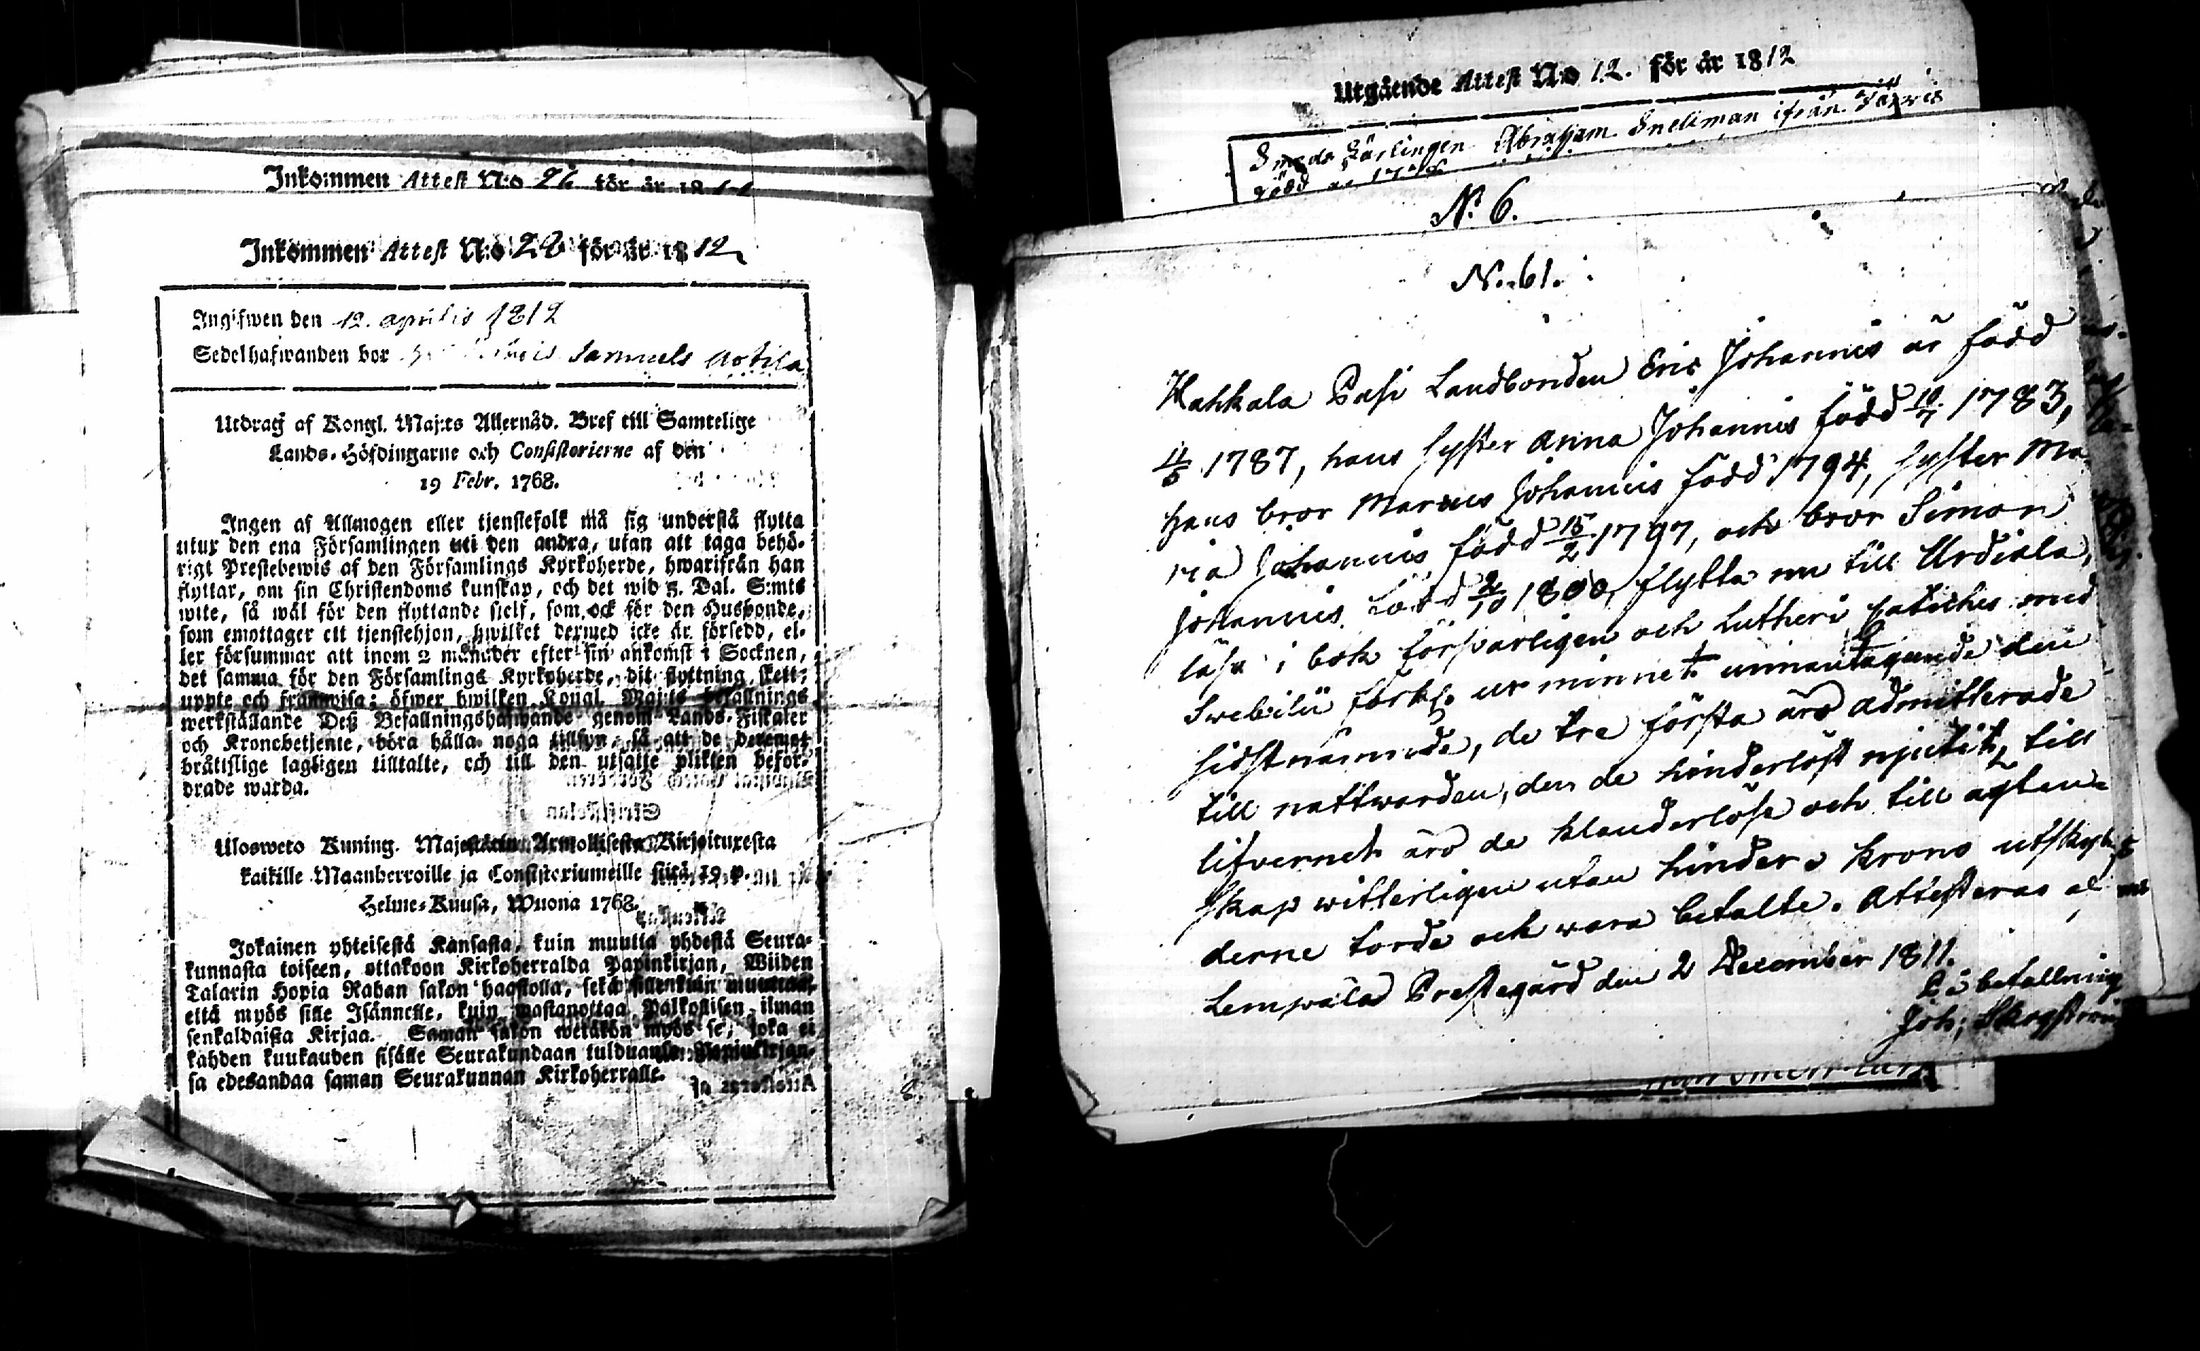 Inkommen Attest N:o 26 för år 18
Inkommen Attest N:o 28 för år 1812
Angifwen den 12. aprilis 1812
Sedelhafwanden bor Samuels Aotila
Utdrag af Kongl. Maj:ts Allernåd. Bref till Samtelige
Lands-Höfdingarne och Consistorierne af den
19 Febr. 1768.
Ingen af Allmogen eller tjenstefolk må sig understå flytta
utur den ena Församlingen uti den andra, utan att taga behö-
rigt Prestebewis af den Församlings Kyrkoherde, hwarifrån han
flyttar, om sin Christendoms kunskap, och det wid 5. Dal. S:mts
wite, så wäl för den flyttande sielf, som ock för den Husbonde,
som emottager ett tjenstehjon, hwilket dermed icke är försedd, el-
ler försummar att inom 2 månader efter sin ankomst i Socknen,
det samma för den Församlings Kyrkoherde, dit flyttning skett,
uppte och framwisa; öfwer hwilken Kongl. Maj:ts befallnings
werkställande Deß Befallningshafwande genom Lands-Fiskaler
och Kronobetjente, böra hålla noga tillsyn, så att de deremot
bråttslige lagligen tilltalte, och till den utsatte plikten befor-
drade warda.
Ulosweto Kuning. Majestätin Armollisesta Kirjoituxesta
kaikille Maanherroille ja Consistoriumeille siitä 19 p.
Helme-Kuusa, Wuona 1768.
Jokainen yhteisestä Kansasta, kuin muutta yhdestä Seura-
kunnasta toiseen, ottakoon Kirkoherralda Papinkirjan, Wiiden
Talarin Hopia Rahan sakon haastolla, sekä sillenkuin muuttaa,
että myös sille Isännelle, kuin wastanottaa Palkollisen ilman
senkaldaista Kirjaa. Saman sakon wetäkön myös se, joka ei
kahden kuukauden sisälle Seurakundaan tulduansa Papinkirjan-
sa edesandaa saman Seurakunnan Kirkoherralle.
Utgående Attest N:o 12. för år 1812
Smeds Lärlingen Abraham Snellman ifrån
född
N:o 6.
N:o 61.
Hahkala Pasi Landbonden Eric Johannis är född
11/5 1787, hans syster Anna Johannis född 10/7 1783,
hans bror Marcus Johannis född 1794, syster Ma
ria Johannis född 15/2 1797, och bror Simon
Johannis född 2/10 1800, flytta nu till Urdiala,
läsa i bok försvarligen och Lutheri catiches med
Swebilii förkl. ur minnet undantagande den
sidstnämnde, de tre första äro admitterade
till nattwarden, den de hinderlöst njutit, till
lifvernet äro de klanderlöse och till ägten-
skap witterligen utan hinder, krono utskyl
derne torde ock wara betalte. Attesteras af
Lempälä Prestegård den 2 December 1811.
På befallning
Joh: